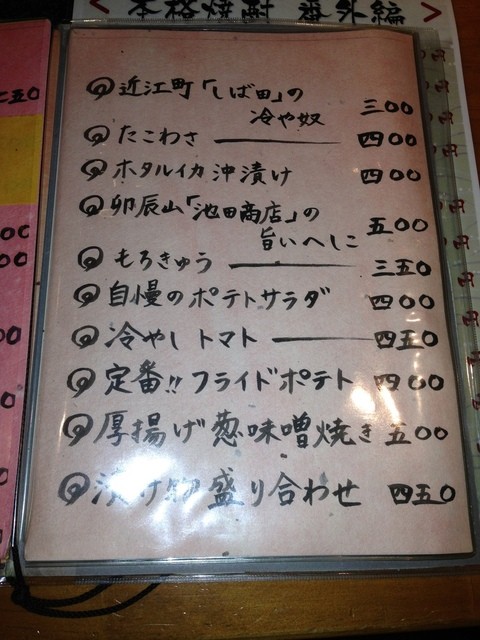 < 本格焼酎 番外編 >
近江町「しば田」の
冷や奴 三〇〇
たこわさ 四〇〇
ホタルイカ沖漬け 四〇〇
卯辰山「池田商店」の
旨いへしこ 五〇〇
もろきゅう 三五〇
自慢のポテトサラダ 四〇〇
冷やしトマト 四五〇
定番!!フライドポテト 四〇〇
厚揚げ葱味噌焼き 五〇〇
漬け物盛り合わせ 四五〇